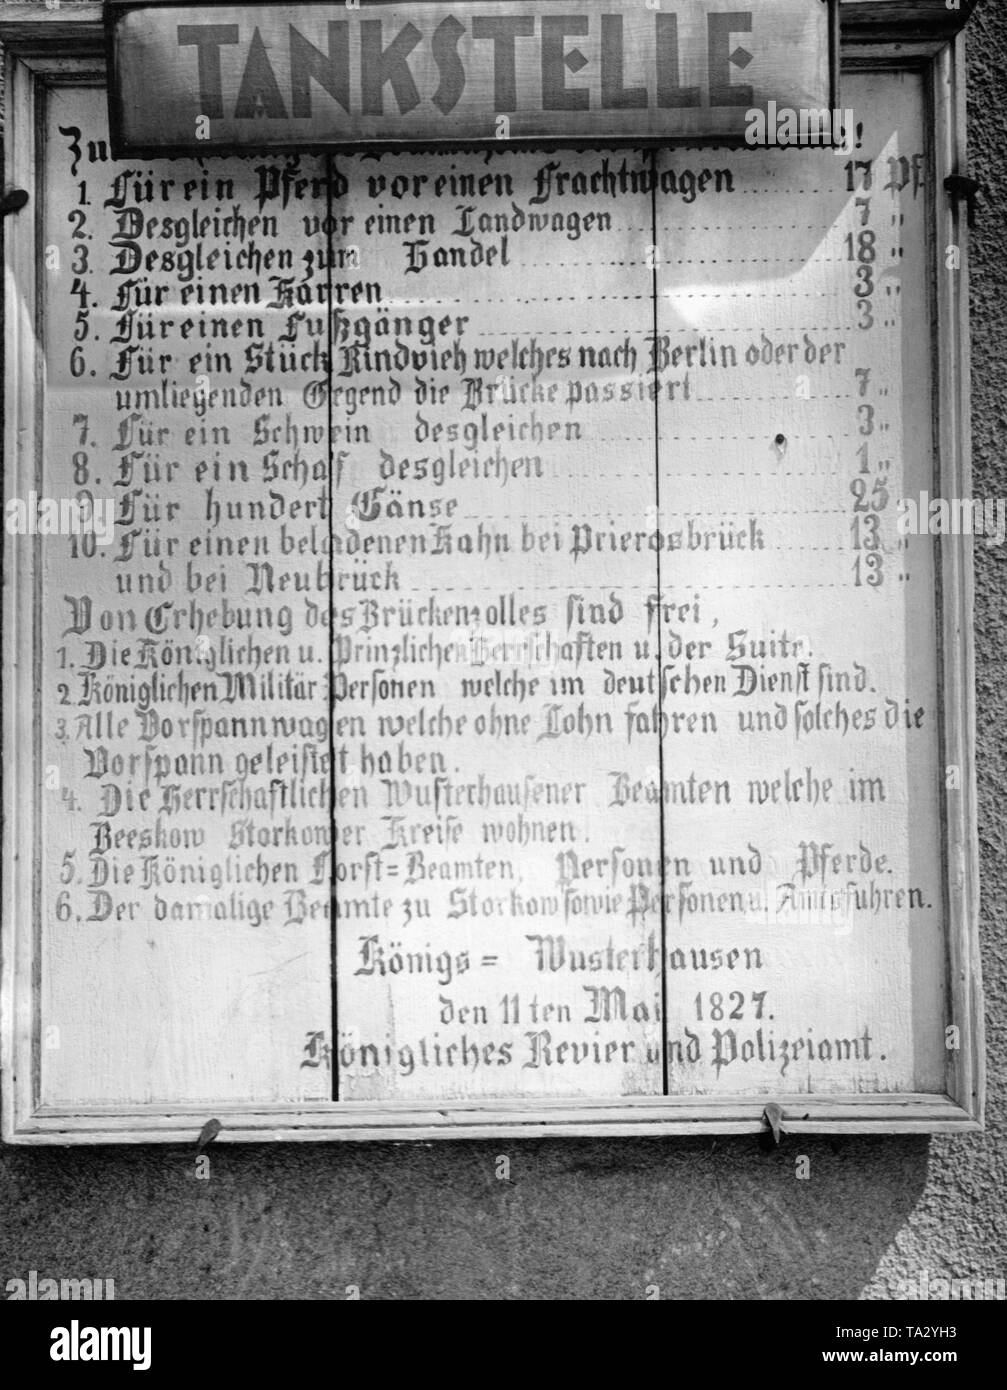 TANKSTELLE
Zur
1. Für ein Pferd vor einen Frachtwagen 17 Pf.
2. Desgleichen vor einen Landwagen 7 "
3. Desgleichen zum Handel 18 "
4. Für einen Karren 3 "
5. Für einen Fußgänger 3 "
6. Für ein Stück Rindvieh welches nach Berlin oder der
umliegenden Gegend die Brücke passiert 7 "
7. Für ein Schwein desgleichen 3 "
8. Für ein Schaf desgleichen 1 "
9. Für hundert Gänse 25 "
10. Für einen beladenen Kahn bei Prierosbrück 13 "
und bei Neubrück 13 "
Von Erhebung des Brückenzolles sind frei,
1. Die Königlichen u. Prinzlichen Herrschaften u. der Suite.
2. Königlichen Militär-Personen welche im deutschen Dienst sind.
3. Alle Vorspannwagen welche ohne Lohn fahren und solches die
Vorspann geleistet haben.
4. Die Herrschaftlichen Wusterhausener Beamten welche im
Beeskow Storkower Kreise wohnen.
5. Die Königlichen Forst=Beamten, Personen und Pferde.
6. Der damalige Beamte zu Storkow sowie Personen u. Amtsfuhren.
Königs = Wusterhausen
den 11ten Mai 1827.
Königliches Revier und Polizeiamt.
alamy
Image ID: TA2YH3
www.alamy.com